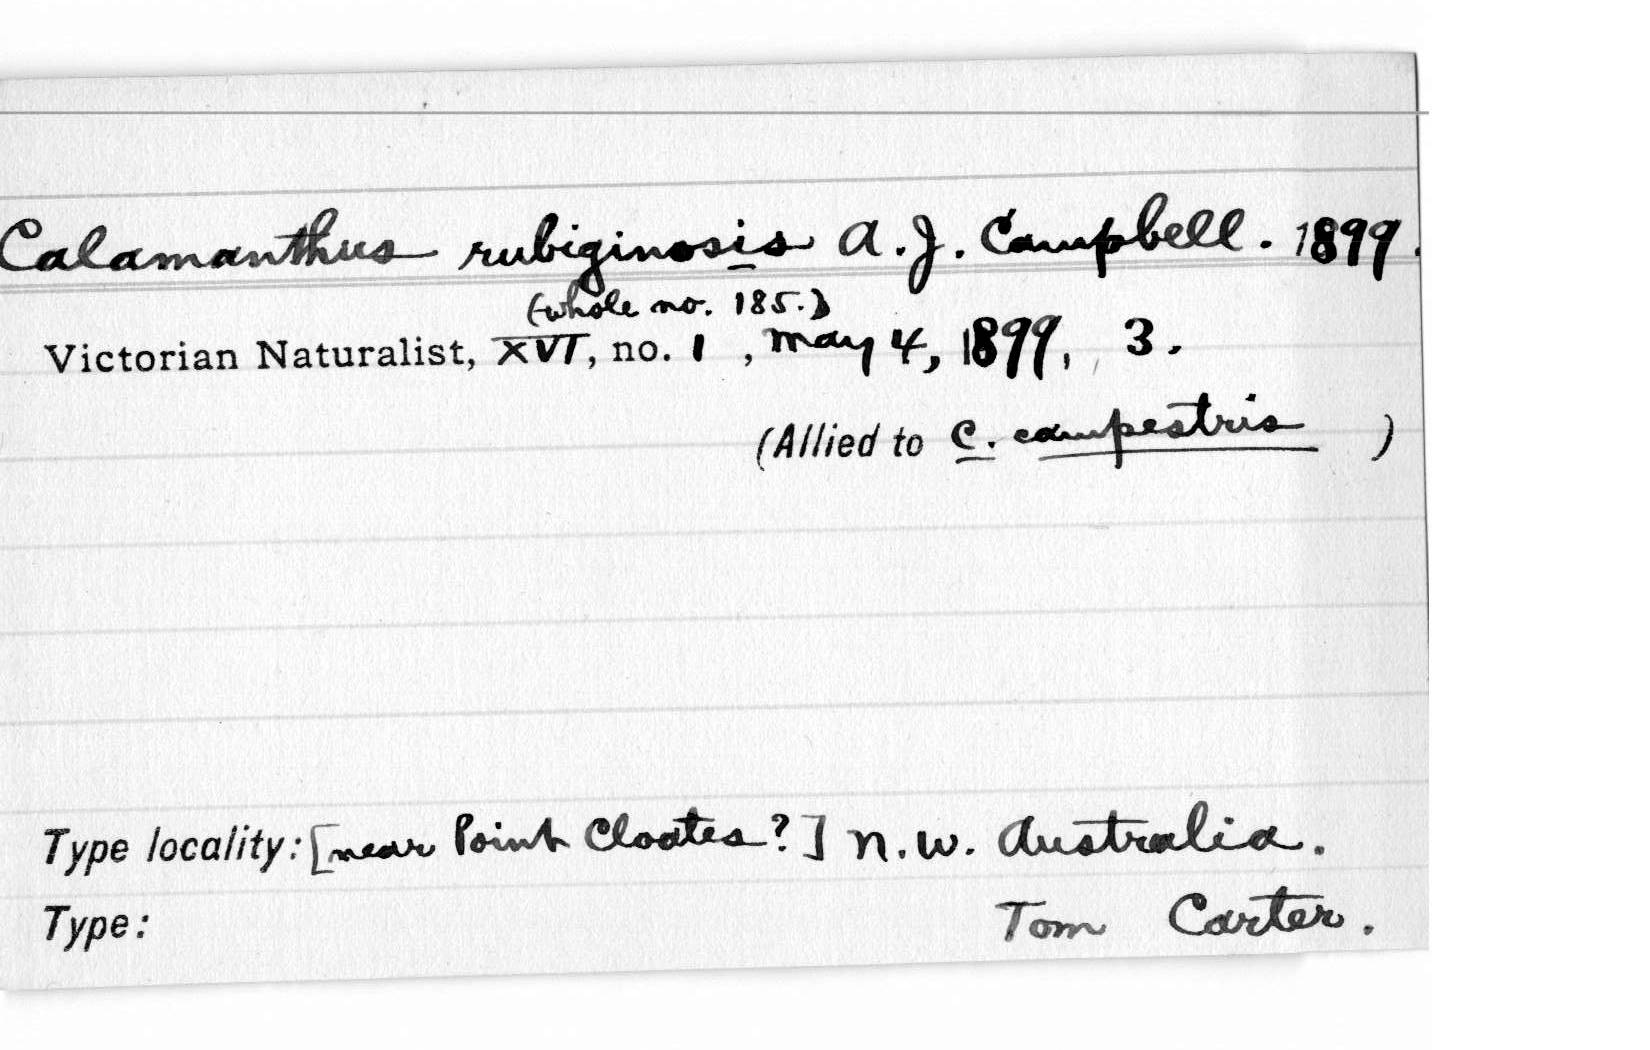 Calamanthus rubiginosis A.J. Campbell. 1899.
(whole no. 185.)
Victorian Naturalist, XVI, no. 1, May 4, 1899, 3.
(Allied to C. campestris )
Type locality: [near Point Cloates?] N.W. Australia.
Type: Tom Carter.